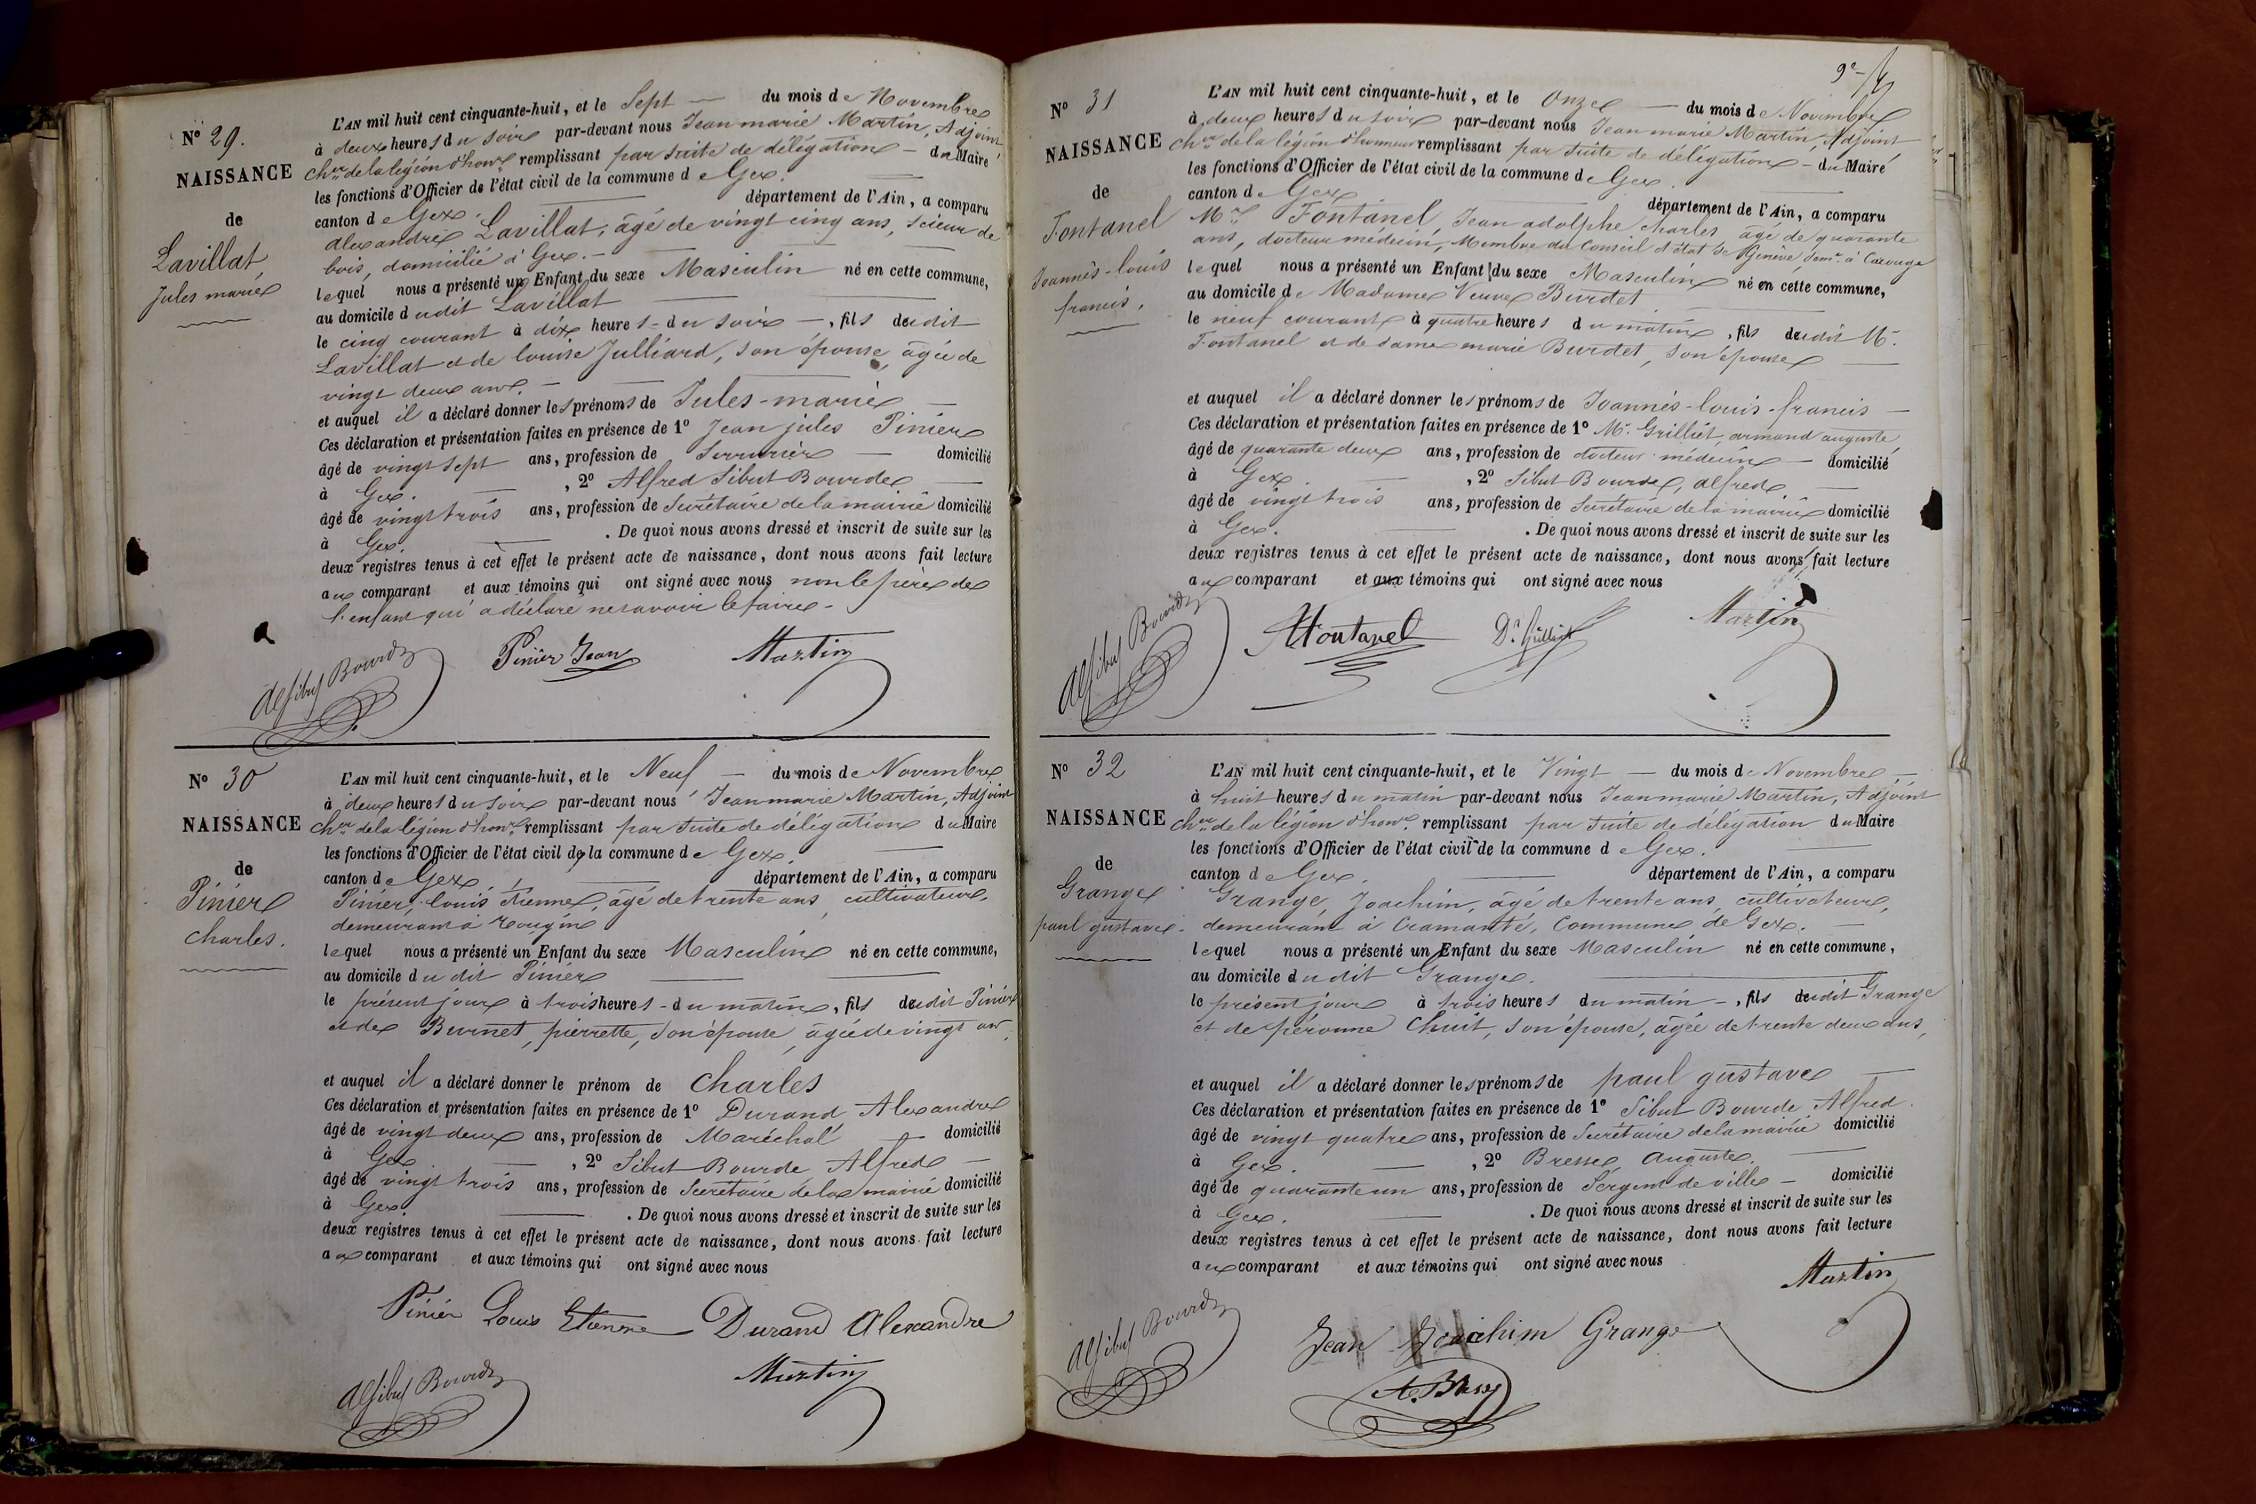 N° 29.
NAISSANCE
de
Lavillat,
Jules marie
L'AN mil huit cent cinquante-huit, et le Sept — du mois de Novembre
à deux heures du soir par-devant nous Jean marie Martin, Adjoint
Chr de la légion d'honr remplissant par suite de délégation — du Maire
les fonctions d'Officier de l'état civil de la commune de Gex.
canton de Gex. département de l'Ain, a comparu
alexandre Lavillat, âgé de vingt cinq ans, scieur de
bois, domicilié à Gex. —
lequel nous a présenté un Enfant du sexe Masculin né en cette commune,
au domicile dudit Lavillat
le cinq courant à dix heures du soir —, fils dudit
Lavillat et de louise Julliard, son épouse, âgée de
vingt deux ans. —
et auquel il a déclaré donner les prénoms de Jules-marie —
Ces déclaration et présentation faites en présence de 1° Jean jules Pinier
âgé de vingt sept ans, profession de Serrurier — domicilié
à Gex. — , 2° Alfred Sibut Bourde —
âgé de vingt trois ans, profession de Secrétaire de la mairie domicilié
à Gex. — . De quoi nous avons dressé et inscrit de suite sur les
deux registres tenus à cet effet le présent acte de naissance, dont nous avons fait lecture
aux comparant et aux témoins qui ont signé avec nous non le père de
l'enfant qui a déclaré ne savoir le faire. —
Alf Sibut Bourde Pinier Jean Martin
N° 30
NAISSANCE
de
Pinier
charles.
L'AN mil huit cent cinquante-huit, et le Neuf — du mois de Novembre
à deux heures du soir par-devant nous Jean marie Martin, Adjoint
Chr de la légion d'honr remplissant par suite de délégation du Maire
les fonctions d'Officier de l'état civil de la commune de Gex.
canton de Gex, département de l'Ain, a comparu
Pinier, louis Etienne, âgé de trente ans, cultivateur,
demeurant à
lequel nous a présenté un Enfant du sexe Masculin né en cette commune,
au domicile du dit Pinier
le présent jour à trois heures - du matin, fils dudit Pinier
et de Burnet, pierrette, son épouse, âgée de vingt ans
et auquel il a déclaré donner le prénom de Charles
Ces déclaration et présentation faites en présence de 1° Durand Alexandre
âgé de vingt deux ans, profession de Maréchal — domicilié
à Gex — , 2° Sibut Bourde Alfred —
âgé de vingt trois ans, profession de Secrétaire de la mairie domicilié
à Gex. — . De quoi nous avons dressé et inscrit de suite sur les
deux registres tenus à cet effet le présent acte de naissance, dont nous avons fait lecture
aux comparant et aux témoins qui ont signé avec nous
Pinier Louis Etienne Durand Alexandre
Alf Sibut Bourde Martin
N° 31
NAISSANCE
de
Fontanel
Joannès-louis
francis.
L'AN mil huit cent cinquante-huit, et le Onze — du mois de Novembre
à deux heures du soir par-devant nous Jean marie Martin, Adjoint
Chr de la légion d'honneur remplissant par suite de délégation — du Maire
les fonctions d'Officier de l'état civil de la commune de Gex.
canton de Gex — département de l'Ain, a comparu
Mr Fontanel, Jean adolphe Charles âgé de quarante
ans, docteur médecin, Membre du Conseil d'état de Genève, demt à Carouge
lequel nous a présenté un Enfant du sexe Masculin né en cette commune,
au domicile de Madame Veuve Burdet
le neuf courant à quatre heures du matin, fils dudit Mr.
Fontanel et de dame marie Burdet, son épouse —
et auquel il a déclaré donner les prénoms de Joannès-louis-francis —
Ces déclaration et présentation faites en présence de 1° Mr. Grilliet, armand auguste,
âgé de quarante deux ans, profession de docteur médecin — domicilié
à Gex. — , 2° Sibut Bourde, alfred —
âgé de vingt trois ans, profession de Secrétaire de la mairie domicilié
à Gex. — . De quoi nous avons dressé et inscrit de suite sur les
deux registres tenus à cet effet le présent acte de naissance, dont nous avons fait lecture
aux comparant et aux témoins qui ont signé avec nous
Alf Sibut Bourde Fontanel Dr Grilliet Martin
N° 32
NAISSANCE
de
Grange
paul gustave.
L'AN mil huit cent cinquante-huit, et le Vingt — du mois de Novembre —
à huit heures du matin par-devant nous Jean marie Martin, Adjoint
Chr de la légion d'honr remplissant par suite de délégation du Maire
les fonctions d'Officier de l'état civil de la commune de Gex.
canton de Gex. — département de l'Ain, a comparu
Grange, Joachim, âgé de trente ans, cultivateur,
demeurant à Cramanté, Commune de Gex. —
lequel nous a présenté un Enfant du sexe Masculin né en cette commune,
au domicile du dit Grange.
le présent jour à trois heures du matin —, fils dudit Grange
et de péronne Chuit, son épouse, âgée de trente deux ans,
et auquel il a déclaré donner les prénoms de paul gustave —
Ces déclaration et présentation faites en présence de 1° Sibut Bourde, Alfred
âgé de vingt quatre ans, profession de Secrétaire de la mairie domicilié
à Gex. — , 2° Bresse, Auguste. —
âgé de quarante un ans, profession de Sergent de ville — domicilié
à Gex. — . De quoi nous avons dressé et inscrit de suite sur les
deux registres tenus à cet effet le présent acte de naissance, dont nous avons fait lecture
aux comparant et aux témoins qui ont signé avec nous
Martin
Alf Sibut Bourde Jean Joachim Grange